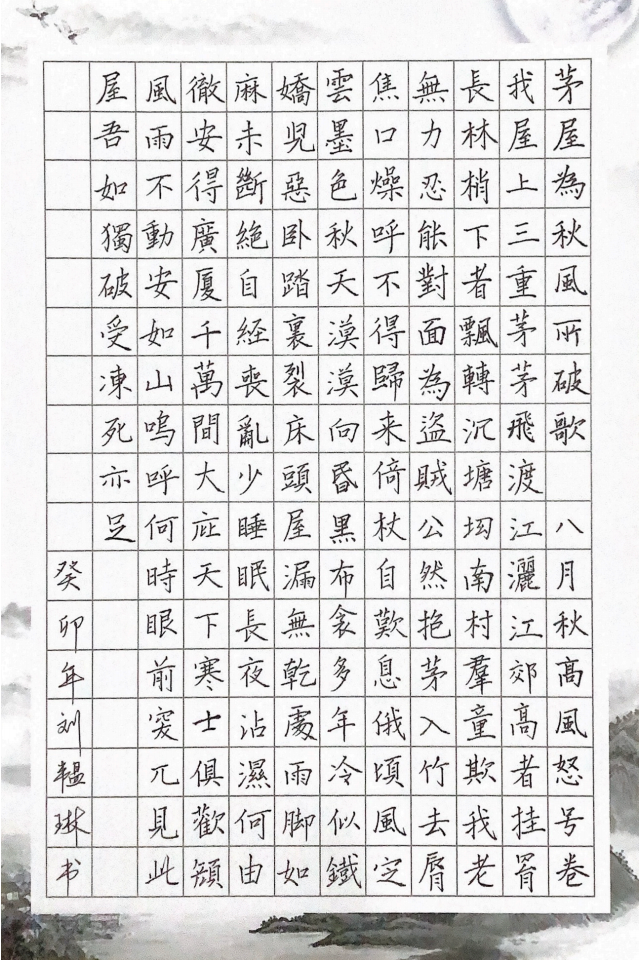 茅屋為秋風所破歌 八月秋高風怒号卷
我屋上三重茅茅飛渡江灑江郊高者挂罥
長林梢下者飄轉沉塘坳南村羣童欺我老
無力忍能對面為盜賊公然抱茅入竹去脣
焦口燥呼不得歸来倚杖自歎息俄頃風定
雲墨色秋天漠漠向昏黑布衾多年冷似鐵
嬌兒惡卧踏裏裂床頭屋漏無乾處雨脚如
麻未斷絕自経喪亂少睡眠長夜沾濕何由
徹安得廣厦千萬間大庇天下寒士俱歡顏
風雨不動安如山嗚呼何時眼前突兀見此
屋吾如獨破受凍死亦足
癸卯年刘韫琳书